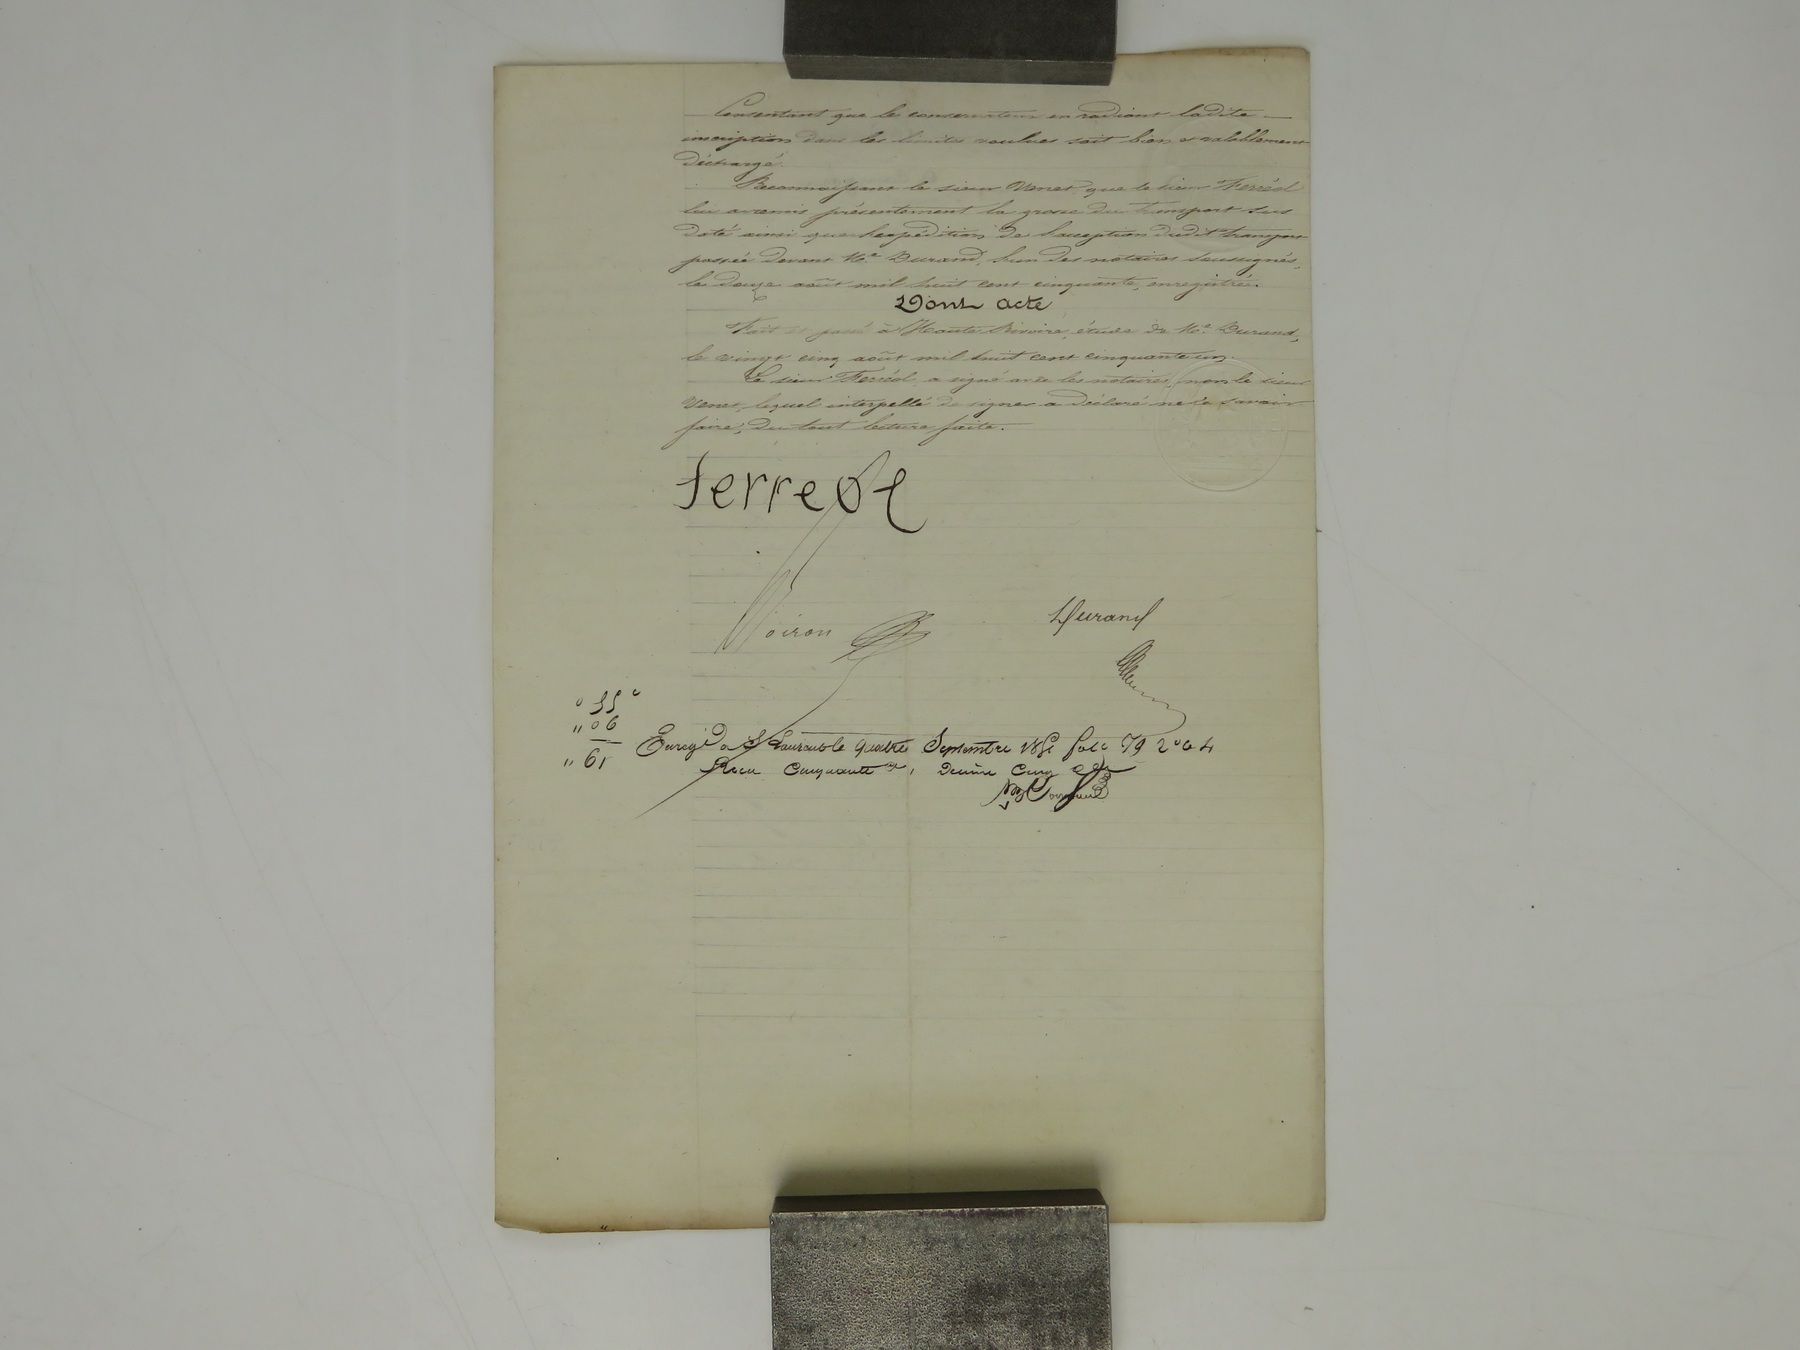 Consentant que le conservateur en radiant ladite
inscription dans les limites voulues soit bien et valablement
déchargé.
Reconnaissant le sieur Venet, que le sieur Ferréol
lui a remis présentement la grosse du transport sus
daté ainsi que l'expédition de l'acceptation dudit transport
passée devant Me Durand, l'un des notaires soussignés,
le douze août mil huit cent cinquante, enregistrée.
Dont acte
Fait et passé à Haute Rivoire, étude de Me Durand,
le vingt cinq août mil huit cent cinquante un.
Le sieur Ferréol a signé avec les notaires, non le sieur
Venet, lequel interpellé de signer a déclaré ne le savoir
faire, du tout lecture faite.
ferreol
Voiron
Durand
" 55 c
" 06
" 61
Enregé a St Laurent le quatre Septembre 1851 folo 79
Reçu Cinquante, Decime Cinq